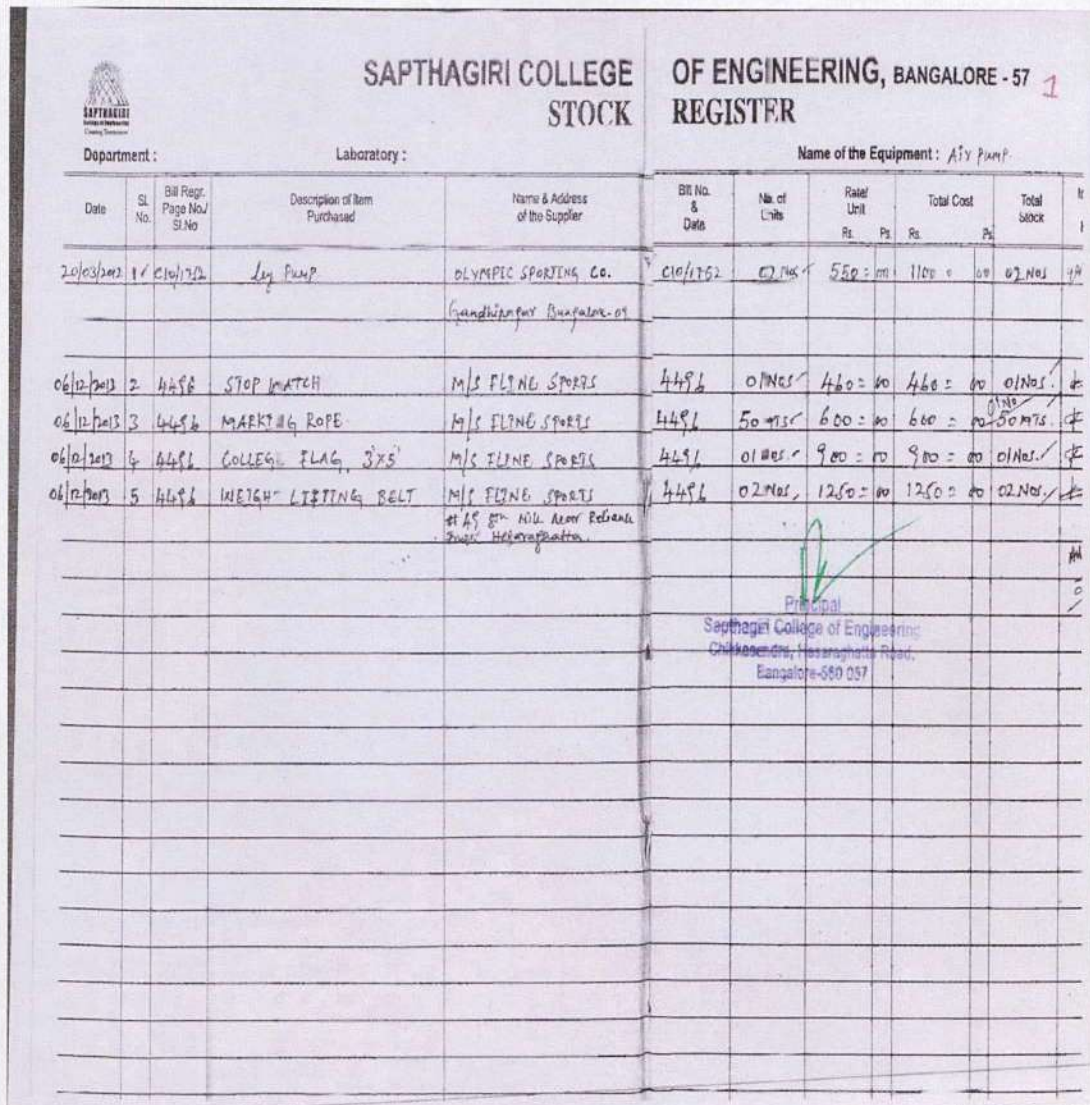 SAPTHAGIRI COLLEGE OF ENGINEERING, BANGALORE - 57 1
STOCK REGISTER
SAPTHAGIRI
Department : Laboratory : Name of the Equipment : Air Pump
Date Sl. No. Bill Regr. Page No./ Sl.No Description of Item Purchased Name & Address of the Supplier Bill No. & Date No. of Units Rate/ Unit Rs. Ps. Total Cost Rs. Ps. Total Stock
20/03/2012 1 C10/1752 Leg Pump OLYMPIC SPORTING CO. C10/1752 02 Nos 550 = 00 1100 = 00 02 Nos
Gandhinagar Bangalore-09
06/12/2013 2 4496 STOP WATCH M/S FLINE SPORTS 4496 01 Nos 460 = 00 460 = 00 01 Nos.
01 No
06/12/2013 3 4496 MARKING ROPE M/S FLINE SPORTS 4496 50 MTS 600 = 00 600 = 00 50 MTS.
06/12/2013 4 4496 COLLEGE FLAG 3'x5' M/S FLINE SPORTS 4496 01 Nos. 900 = 00 900 = 00 01 Nos.
06/12/2013 5 4496 WEIGHT LIFTING BELT M/S FLINE SPORTS 4496 02 Nos. 1250 = 00 1250 = 00 02 Nos.
# 49 8th Mile Near Reliance
Hesaraghatta.
Principal
Sapthagiri College of Engineering
Chikkasandra, Hesaraghatta Road,
Bangalore-560 057